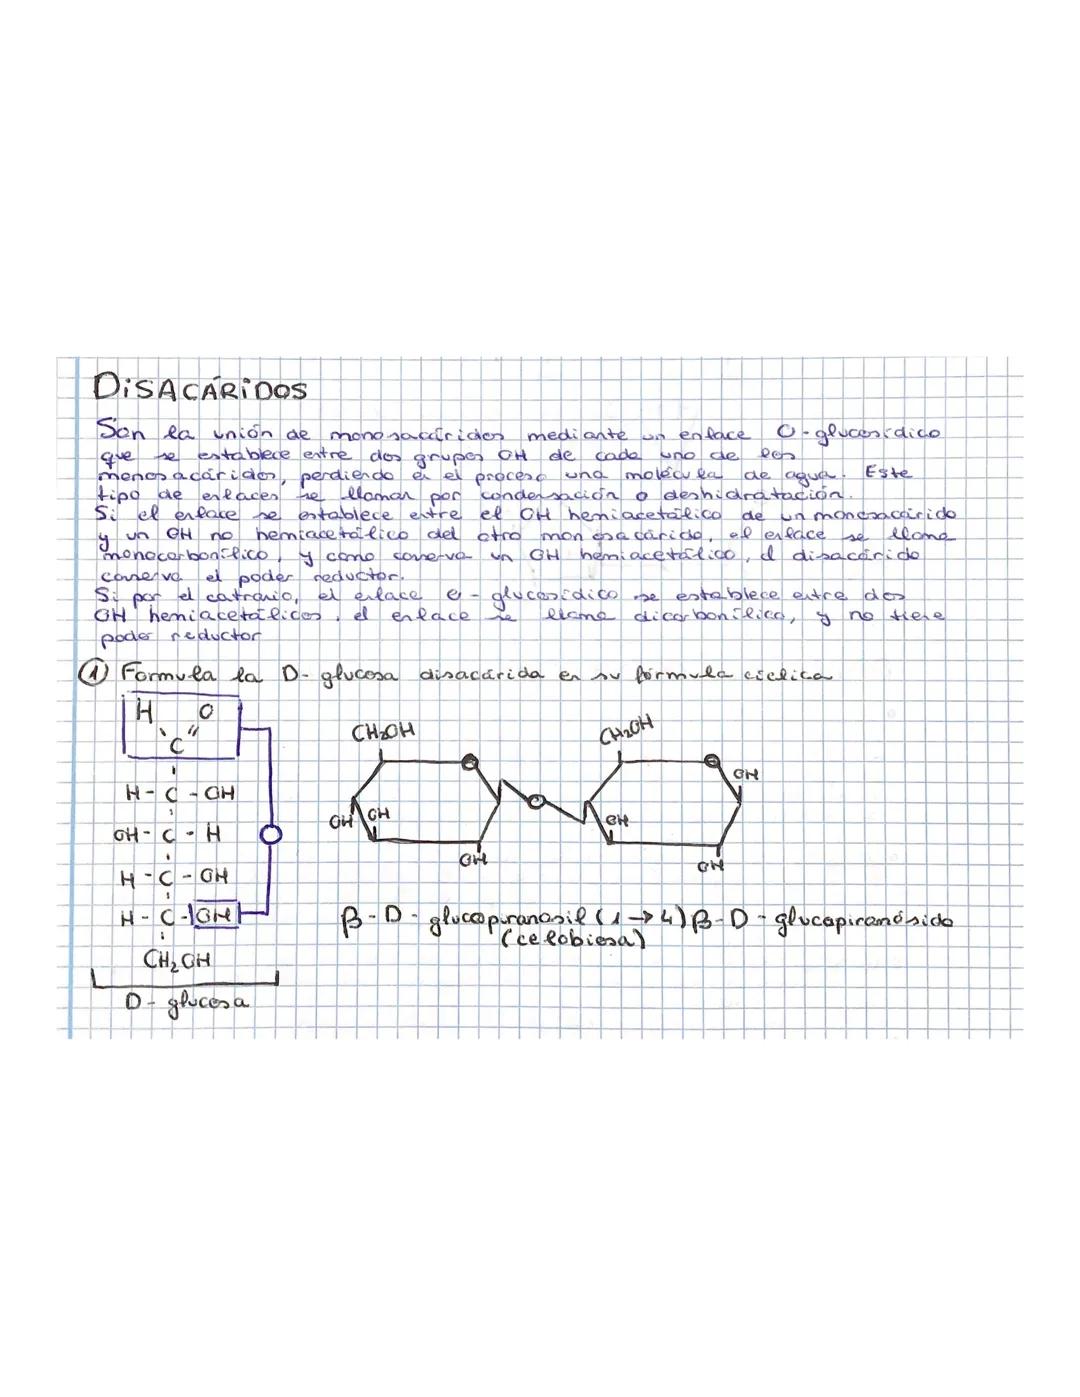 DISACÁRIDOS
Son la unión de monosacáridos mediante un enlace O-glucosídico
que se establece entre dos grupos OH de cada uno de los
monosacáridos, perdiendo en el proceso una molécula de agua. Este
tipo de enlaces se llaman por condensación o deshidratación.
Si el enlace se establece entre el OH hemiacetálico de un monosacárido
y un OH no hemiacetálico del otro monosacárido, el enlace se llama
monocarbonílico, y como conserva un OH hemiacetálico, el disacárido
conserva el poder reductor.
Si por el contrario, el enlace o-glucosídico se establece entre dos
OH hemiacetálicos, el enlace se llama dicarbonílico, y no tiene
poder reductor
① Formula la D-glucosa disacárida en su fórmula cíclica
H O
C
H - C - OH
OH - C - H
H - C - OH
H - C - OH
CH₂OH
D-glucosa
CH₂OH
CH₂OH
OH
OH
OH
OH
OH
OH
β-D-glucopiranosil (1→4) β-D-glucopiranósido
(celobiosa)